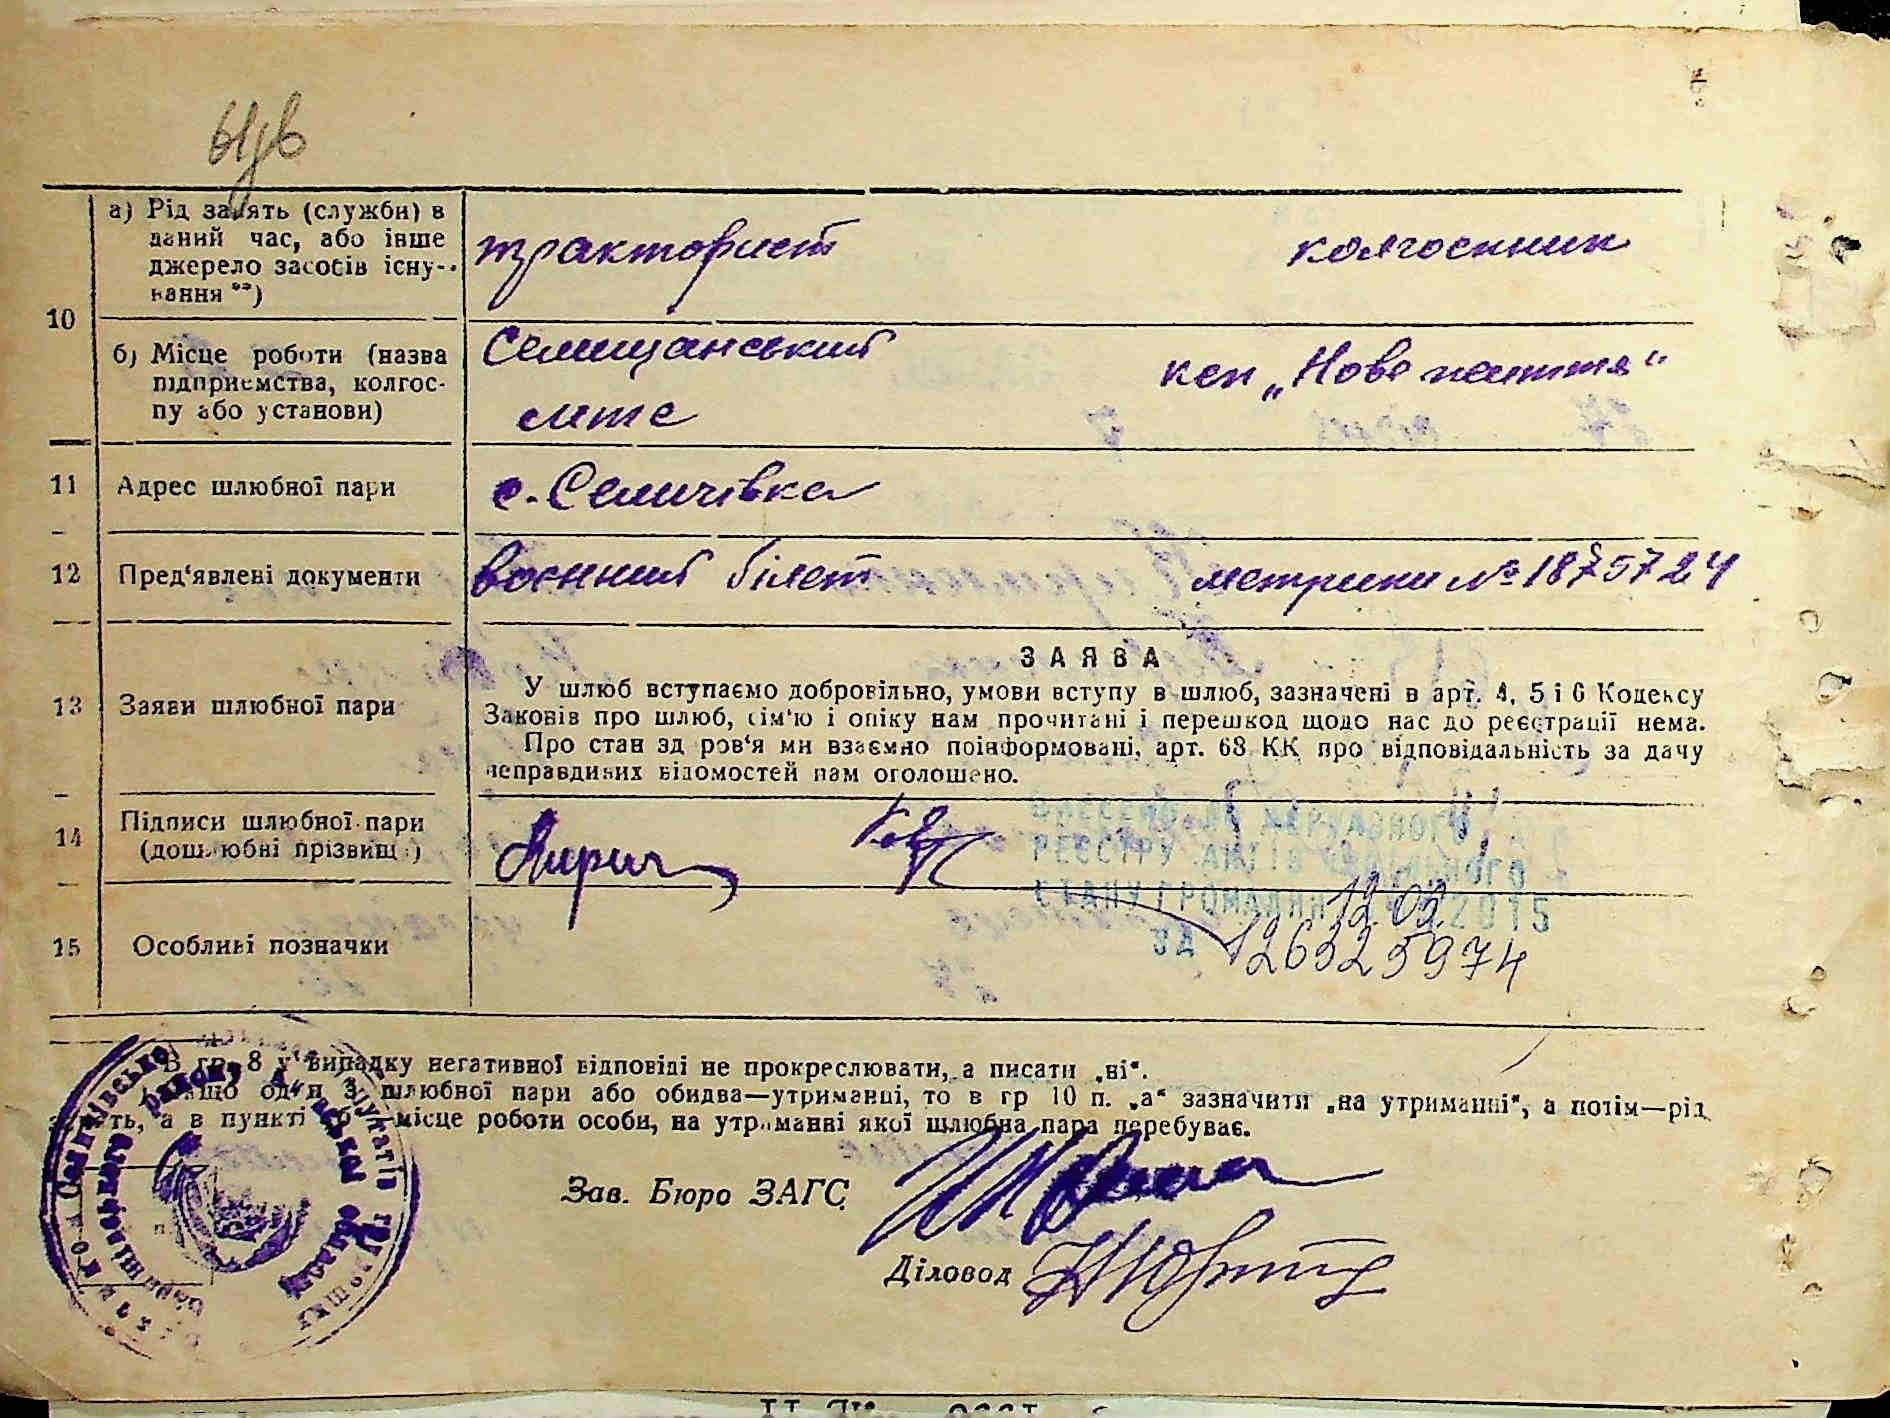 а) Рід занять (служби) в
даний час, або інше
джерело засобів існу-
вання **)
трактористъ
колгоспник
10
б) Місце роботи (назва
підприємства, колгос-
пу або установи)
Селищанський
мтс
ксп „Нове життя“
11
Адрес шлюбної пари
с. Селичівка
12
Пред‘явлені документи
воєнний білет
метрики № 1875724
13
Заяви шлюбної пари
ЗАЯВА
У шлюб вступаємо добровільно, умови вступу в шлюб, зазначені в арт. 4, 5 і 6 Кодексу
Законів про шлюб, сім‘ю і опіку нам прочитані і перешкод щодо нас до реєстрації нема.
Про стан здоров‘я ми взаємно поінформовані, арт. 68 КК про відповідальність за дачу
неправдивих відомостей нам оголошено.
14
Підписи шлюбної пари
(дошлюбні прізвища)
ВНЕСЕНО ДО ДЕРЖАВНОГО
РЕЄСТРУ АКТІВ ЦИВІЛЬНОГО
СТАНУ ГРОМАДЯН 12.03.2015
ЗА 126325974
15
Особливі позначки
В гр. 8 у випадку негативної відповіді не прокреслювати, а писати „ні“.
Якщо один з шлюбної пари або обидва—утриманці, то в гр 10 п. „а“ зазначити „на утриманні“, а потім—рід
занять, а в пункті „б“—місце роботи особи, на утриманні якої шлюбна пара перебуває.
Зав. Бюро ЗАГС
Діловод